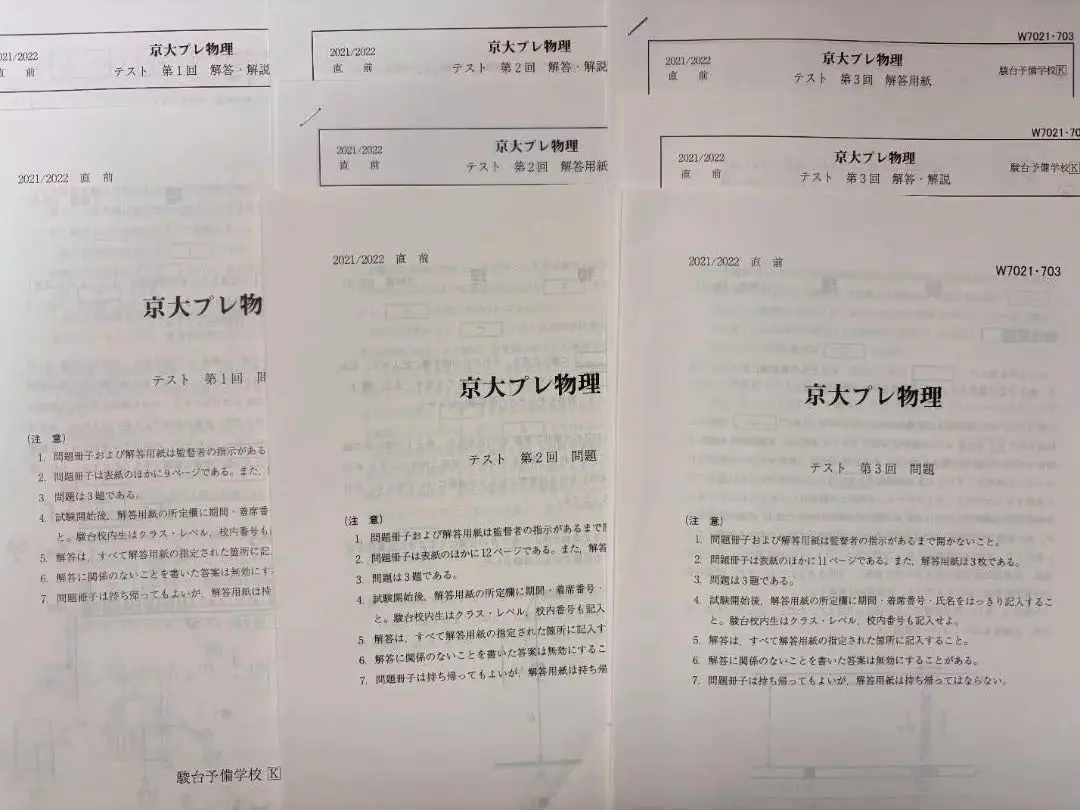 021/2022
直 前
京大プレ物理
テスト 第1回 解答・解説
2021/2022 直 前
京大プレ物
テスト 第1回
(注 意)
1. 問題冊子および解答用紙は監督者の指示がある
2. 問題冊子は表紙のほかに9ページである。また、
3. 問題は3題である。
4. 試験開始後、解答用紙の所定欄に期間・着席番
と。駿台校内生はクラス・レベル、校内番号も
5. 解答は、すべて解答用紙の指定された箇所に記
6. 解答に関係のないことを書いた答案は無効にす
7. 問題冊子は持ち帰ってもよいが、解答用紙は持
駿台予備学校 K
2021/2022
直 前
京大プレ物理
テスト 第2回 解答・解説
2021/2022
直 前
京大プレ物理
テスト 第2回 解答用紙
2021/2022 直 前
京大プレ物理
テスト 第2回 問題
(注 意)
1. 問題冊子および解答用紙は監督者の指示があるまで
2. 問題冊子は表紙のほかに12ページである。また、解答
3. 問題は3題である。
4. 試験開始後、解答用紙の所定欄に期間・着席番号・
と。駿台校内生はクラス・レベル、校内番号も記入
5. 解答は、すべて解答用紙の指定された箇所に記入す
6. 解答に関係のないことを書いた答案は無効にするこ
7. 問題冊子は持ち帰ってもよいが、解答用紙は持ち帰
W7021・703
2021/2022
直 前
京大プレ物理
テスト 第3回 解答用紙
駿台予備学校 K
W7021・70
2021/2022
直 前
京大プレ物理
テスト 第3回 解答・解説
駿台予備学校 K
2021/2022 直 前
W7021・703
京大プレ物理
テスト 第3回 問題
(注 意)
1. 問題冊子および解答用紙は監督者の指示があるまで開かないこと。
2. 問題冊子は表紙のほかに11ページである。また、解答用紙は3枚である。
3. 問題は3題である。
4. 試験開始後、解答用紙の所定欄に期間・着席番号・氏名をはっきり記入するこ
と。駿台校内生はクラス・レベル、校内番号も記入せよ。
5. 解答は、すべて解答用紙の指定された箇所に記入すること。
6. 解答に関係のないことを書いた答案は無効にすることがある。
7. 問題冊子は持ち帰ってもよいが、解答用紙は持ち帰ってはならない。